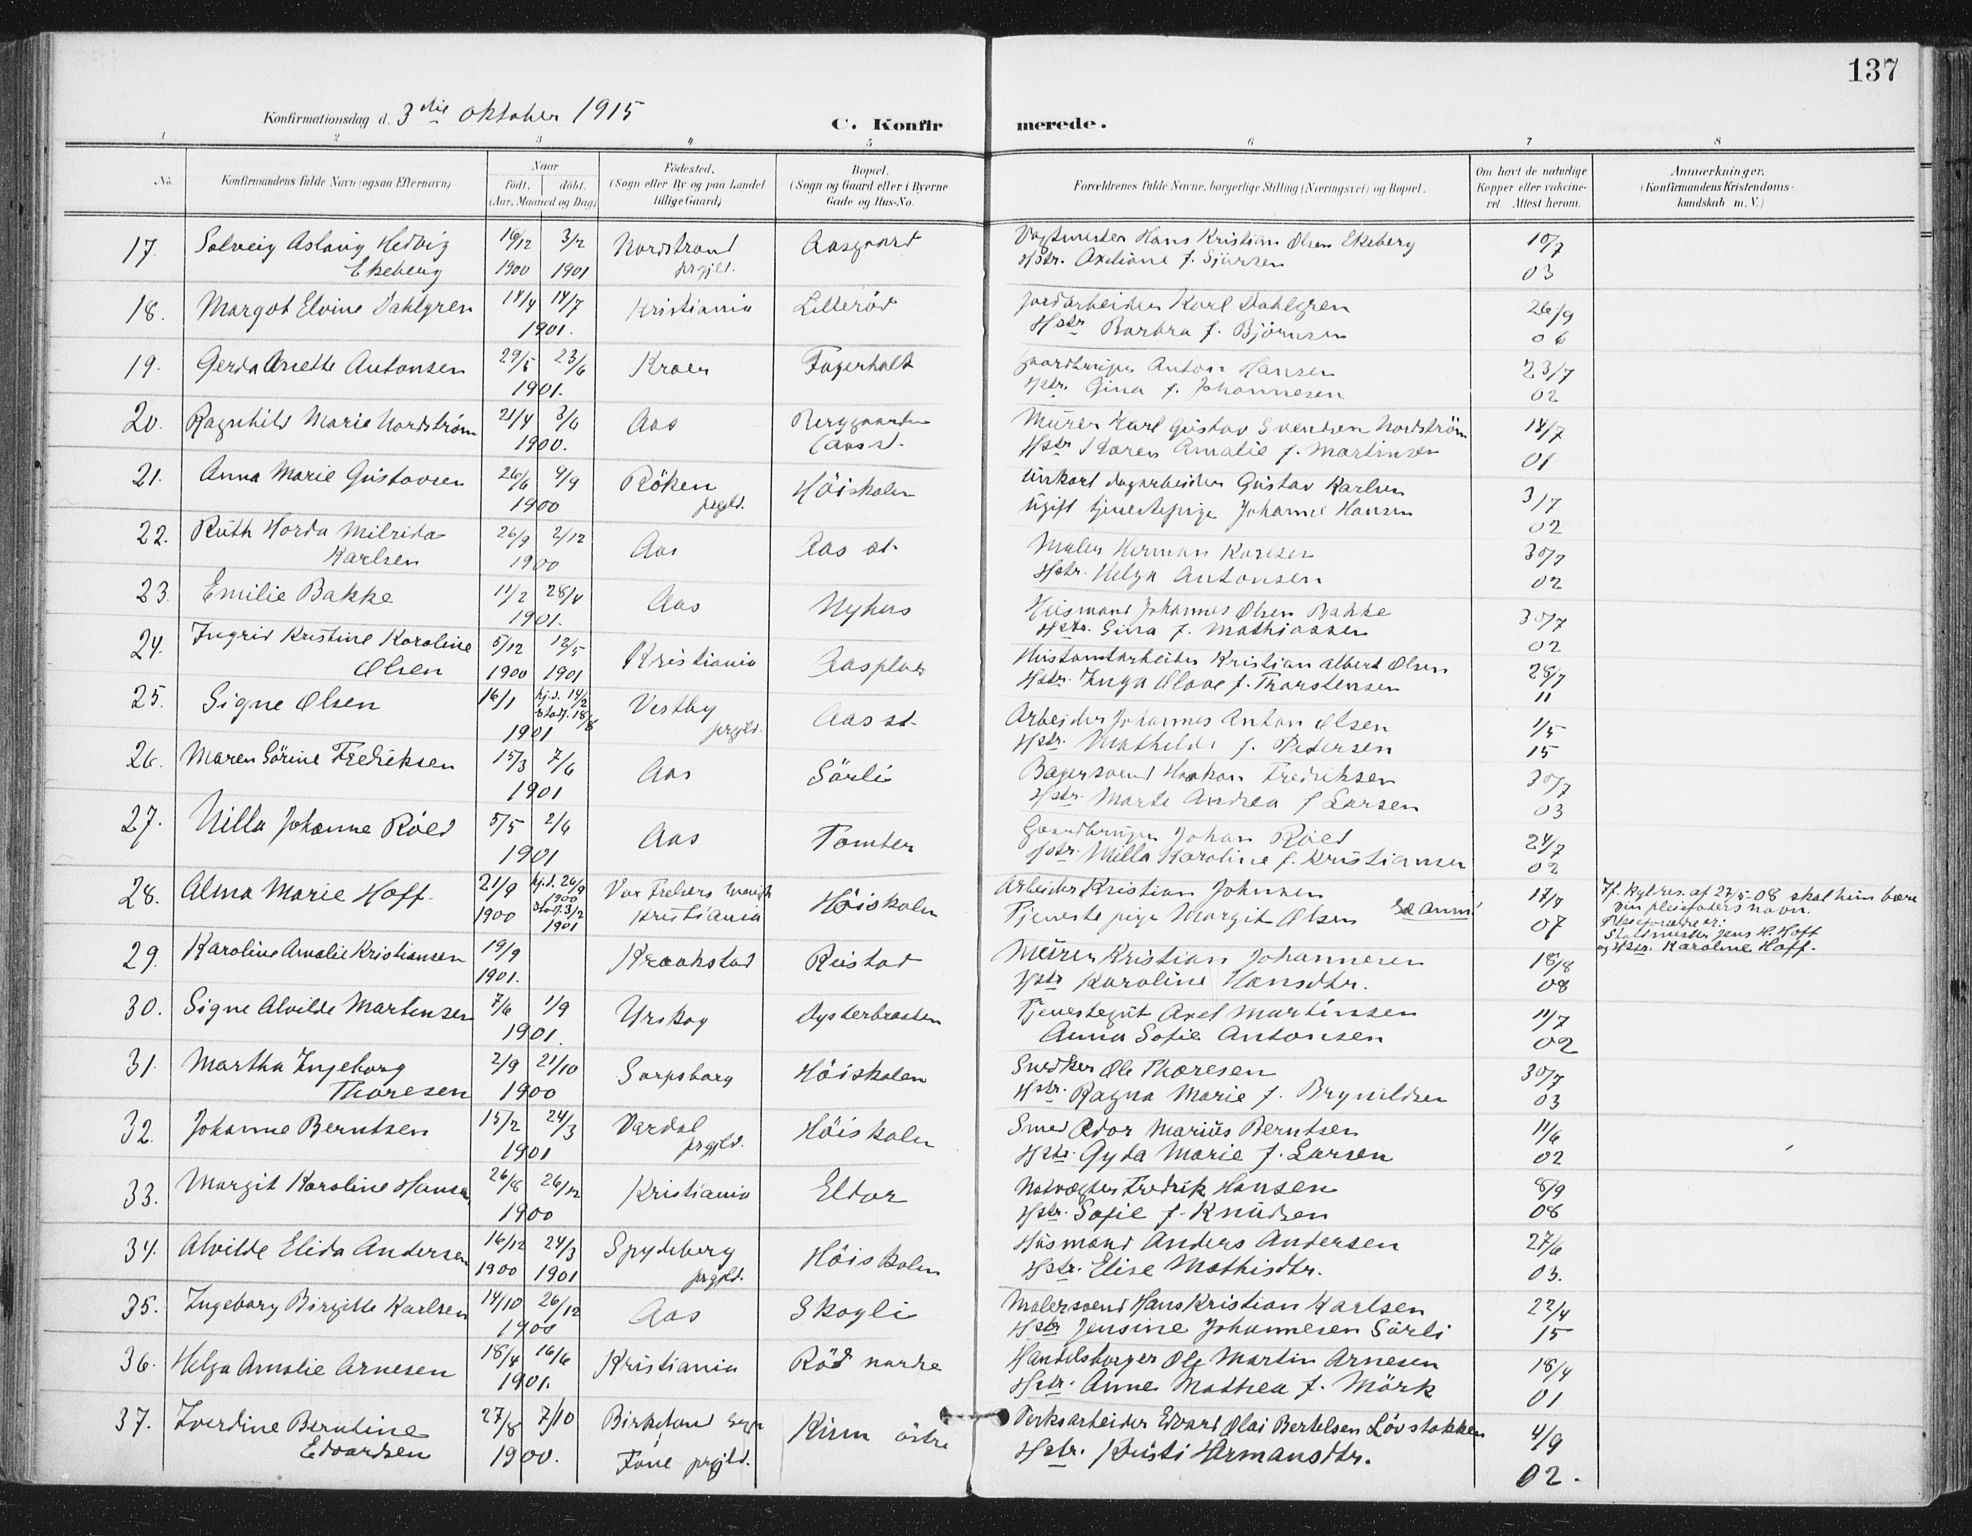 137
Konfirmationsdag d. 3die oktober 1915
C. Konfirmerede.
1 2 3 4 5 6 7 8
No. Konfirmandens fulde Navn (ogsaa Efternavn) Naar født. døbt. (Aar, Maaned og Dag) Fødested. (Sogn eller By og paa Landet tillige Gaard) Bopæl. (Sogn og Gaard eller i Byerne Gade og Hus-No. Forældrenes fulde Navne, borgerlige Stilling (Næringsvei) og Bopæl. Om havt de naturlige Kopper eller vakcineret Attest herom. Anmærkninger. (Konfirmandens Kristendomskundskab m. V.)
17. Solveig Aslaug Hedvig 16/12 3/2 Nordstrand Aasgaard Vagtmester Hans Kristian Olsen Ekeberg 10/7
Ekeberg 1900 1901 prgjld. Hstr. Axeliane f. Sjursen 03
18. Margot Elvine Dahlgren 14/4 14/7 Kristiania Lillerød Jordarbeider Karl Dahlgren 26/9
1901. Hstr Barbra f. Bjørnsen 06
19. Gerda Anette Antonsen 29/5 23/6 Kroer Fagerholt Gaardbruger Anton Hansen 23/7
1901. Hstr. Gina f. Johannesen 02
20. Ragnhild Marie Nordstrøm 21/4 3/6 Aas Berggaarden Murer Karl Gustav Svendsen Nordstrøm 14/7
1900. (Aas st. Hstr Karen Amalie f. Martinsen 01
21. Anna Marie Gustavsen 26/6 9/9 Röken Höiskolen Unkarl dagarbeider Gustav Karlsen 3/7
1900 prgjld. Ugift tjenestepige Johanne Hansen 02
22. Ruth Horda Milrida 26/9 2/12 Aas Aas st. Maler Herman Karlsen 30/7
Karlsen 1900 Hstr. Helga Antonsen 02
23. Emilie Bakke 11/2 28/4 Aas Nyhus Husmand Johannes Olsen Bakke 30/7
1901. Hstr. Gina f. Mathiassen 02
24. Ingrid Kristine Karoline 5/12 12/5 Kristiania Aasplas Kristian Albert Olsen 28/7
Olsen 1900 1901 Hstr. Inga Olave f. Thorstensen 11
25. Signe Olsen 16/1 hj.d. 14/2 Vestby Aas st. Arbeider Johannes Anton Olsen 1/5
1901 stadf. 18/8 prgjld. Hstr. Mathilde f. Pedersen 15
26. Maren Sörine Fredriksen 15/3 7/6 Aas Sörli Bagersvend Haakon Fredriksen 30/7
1901 Hstr. Marte Andrea f Larsen 03
27. Nilla Johanne Röed 5/5 2/6 Aas Tomter Gaardbruger Johan Röed 24/7
1901 Hstr. Milla Karoline f. Kristiansen 02
28. Alma Marie Hoff 21/9 hj.d. 26/9 1900 Vor Frelsers menigh Höiskolen Arbeider Kristian Johnsen 17/7 If. kgl. res. af 27/5-08 skal hun bære
1900 stadf. 3/2 1901 Kristiania Tjenestepige Margit Olsen 07 sin pleiefaders navn.
Pleieforældre er:
Staldmester Jens H. Hoff
og Hstr. Karoline Hoff.
29. Karoline Amalie Kristiansen 19/9 Kraakstad Rustad Murer Kristian Johannesen 18/8
1901. Hstr Karoline Hansdtr. 08
30. Signe Alvilde Martinsen 7/6 1/9 Urskog Dysterbraaten Tjenestegut Axel Martinsen 11/7
1901. Anna Sofie Antonsen 02
31. Martha Ingeborg 2/9 21/10 Sarpsborg Höiskolen Snedker Ole Thoresen 30/7
Thoresen 1900 Hstr. Ragna Marie f. Brynildsen 03
32. Johanne Berntsen 15/2 24/3 Vardal Höiskolen Smed Ador Marius Berntsen 11/6
1901 prgjld. Hstr. Gyda Marie f. Larsen 02
33. Margit Karoline Hansen 26/8 26/12 Kristiania Eldor Natvægter Fredrik Hansen 8/9
1900 Hstr. Sofie f. Knudsen 08
34. Alvilde Elida Andersen 16/12 24/3 Spydeberg Höiskolen Husmand Anders Andersen 27/6
1900 1901 prgjld. Hstr. Elise Mathisdtr. 03.
35. Ingeborg Birgitte Karlsen 14/10 26/12 Aas Skogli Malersvend Hans Kristian Karlsen 22/4
1900 Hstr Jensine Johannesen Sörli 15
36. Helga Amalie Arnesen 18/4 16/6 Kristiania Röd nordre Handelsborger Ole Martin Arnesen 18/4
1901. Hstr. Anne Mathea f. Mörk 01
37. Iverdine Berntine 27/8 7/10 Birkeland sogn Kirn östre Verksarbeider Edvard Olai Bertelsen Lövstakken 4/9
Edvardsen 1900. Fane prgjld. Hstr. Kristi Hermansdtr. 02.